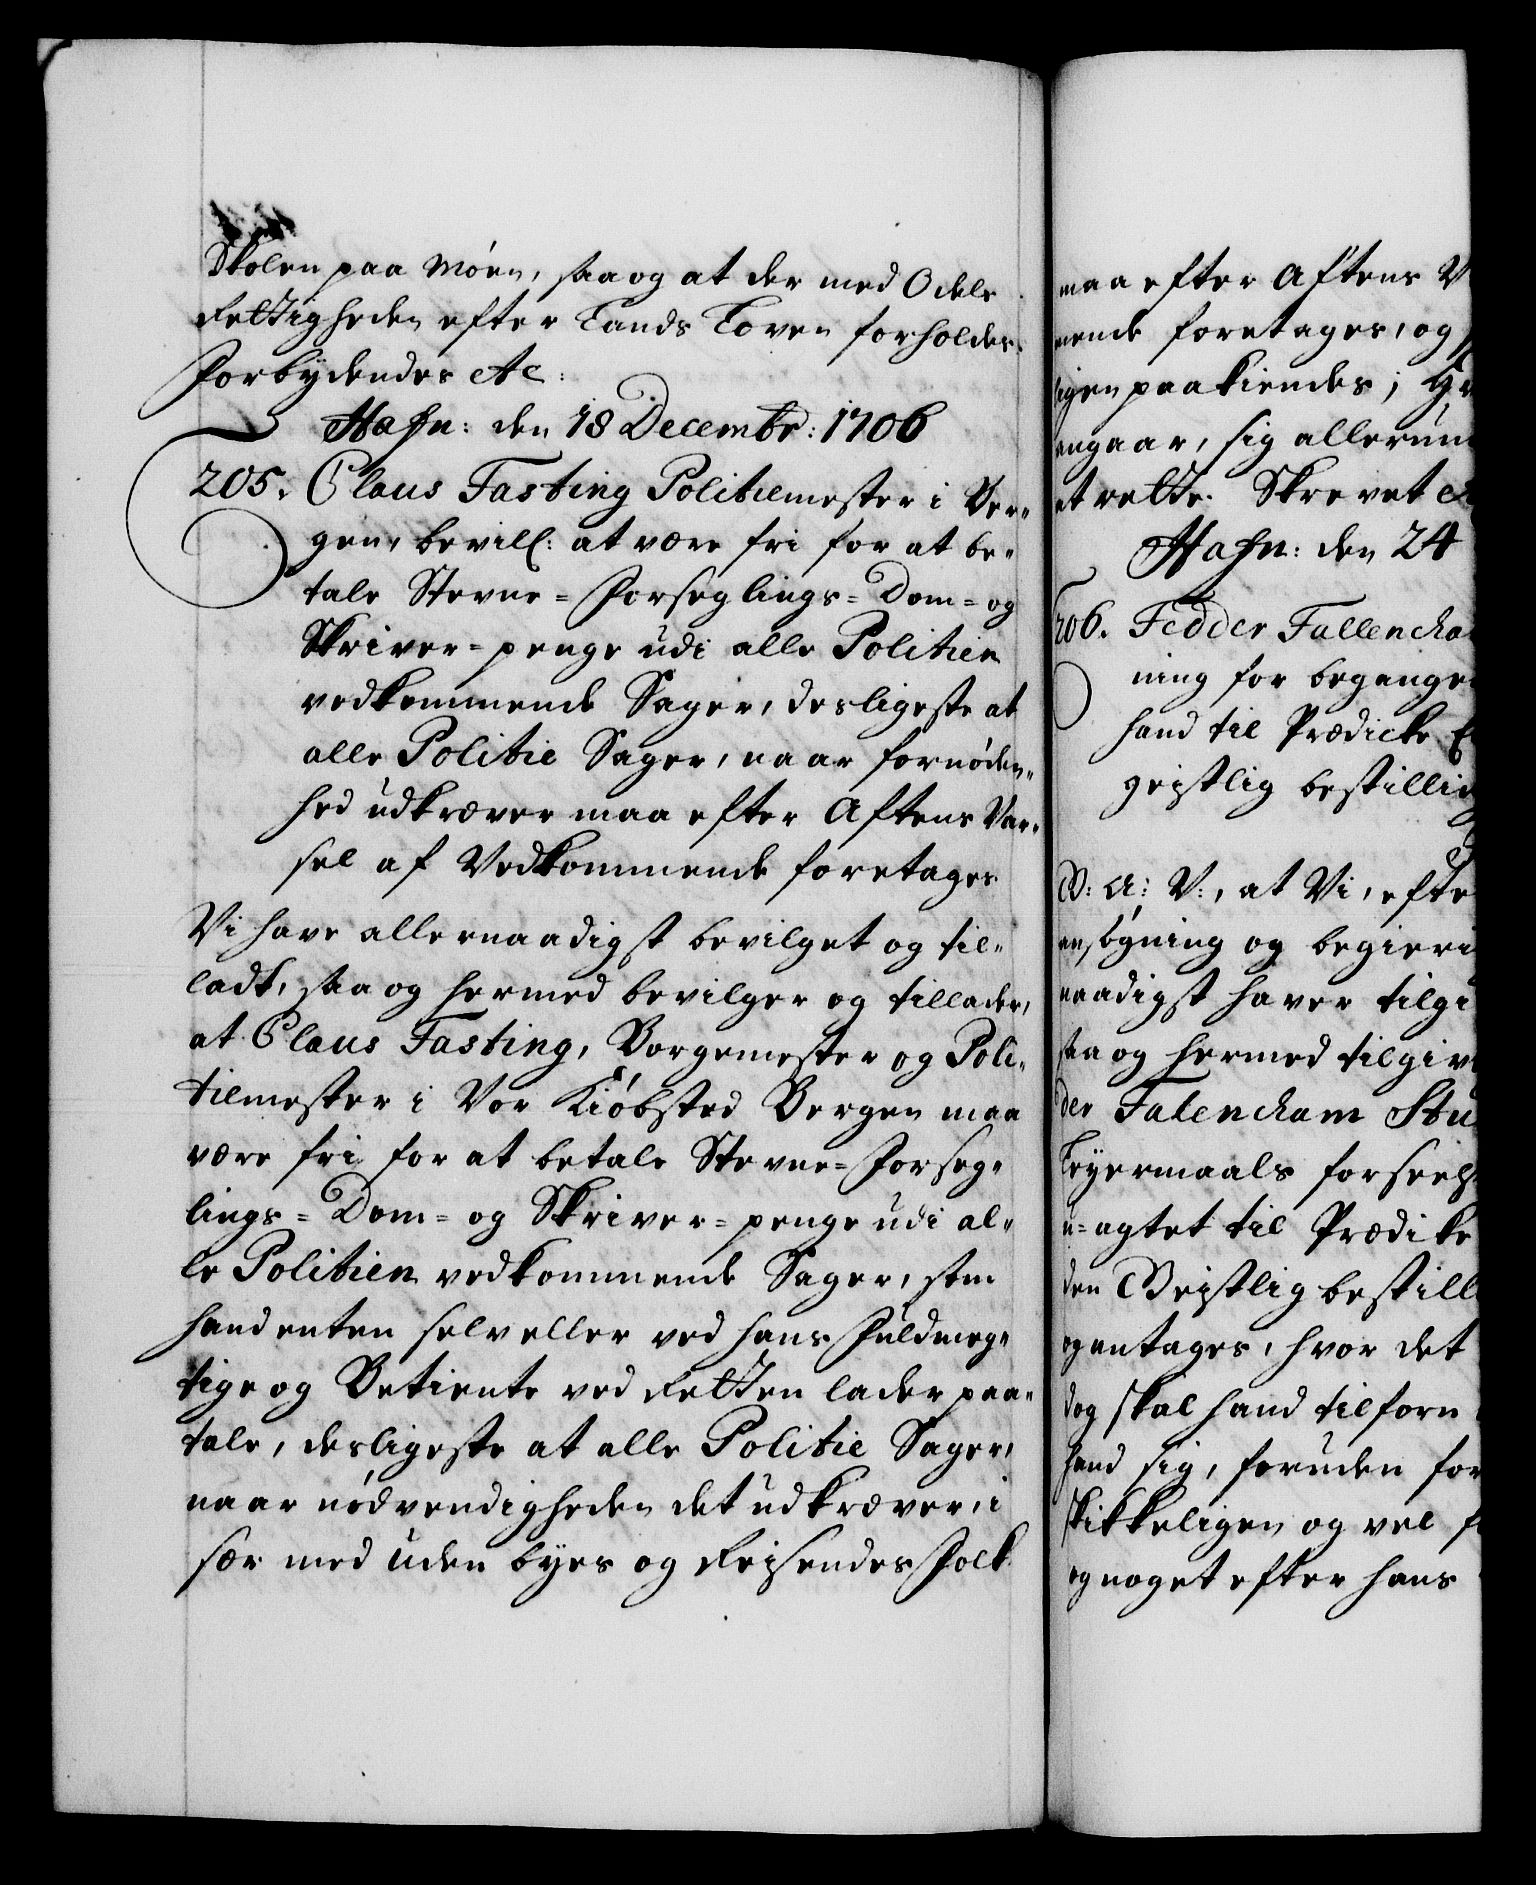 Skolen paa Møen, saa og at der med Odels
Rettigheden efter Lands Loven forholdes.
Forbydendes etc:
Hafn: den 18 Decembr: 1706
205. Claus Fasting Politiemester i Ber-
gen, bevill: at være fri for at be-
tale Stevne- Forseglings- Dom- og
Skriver-penge udi alle Politien
vedkommende Sager, desligeste at
alle Politie Sager, naar fornøden-
hed udkræver maa efter Aftens Var-
sel af Vedkommende foretages
Vi have allernaadigst bevilget og til-
ladt, saa og hermed bevilger og tillader,
at Claus Fasting, Borgemester og Poli-
tiemester i Vor Kiøbsted Bergen maa
være fri for at betale Stevne- Forseg-
lings- Dom- og Skriver-penge udi al-
le Politien vedkommende Sager, som
hand enten selv eller ved hans Fuldmeg-
tige og Betiente ved Retten lader paa-
tale, desligeste at alle Politie Sager,
naar nødvendigheden det udkræver, i
sær med uden byes og Reisendes Folk
maa efter Aftens V
mende foretages, og
ligen paakiendes; H
angaar, sig allerun
et rette. Skrevet
Hafn: den 24
206. Fedder Fallencka
ning for begangen
hand til Prædicke E
geistlig bestillin
G: A: V:, at Vi, efter
ansøgning og begieri
naadigst haver tilgi
saa og hermed tilgiv
der Falenckam Stu
Leyermaals forseels
u-agtet til Prædike
den Geistlig bestill
og antages, hvor det
dog skal hand tilforn
hand sig, foruden for
skikkeligen og vel f
og noget efter hans